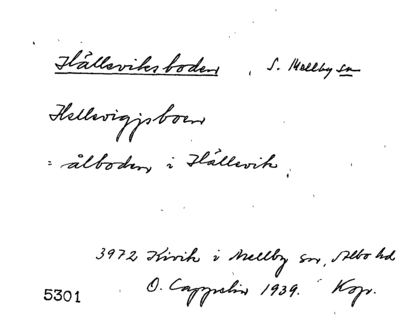 Hällsviksboden, S. Mellby sn
Hellsvigjsboen
= ålboden i Hällsvik.
3972 Kivik i Mellby sn, Albo hd
5301 O. Cappelin 1939. Kop.